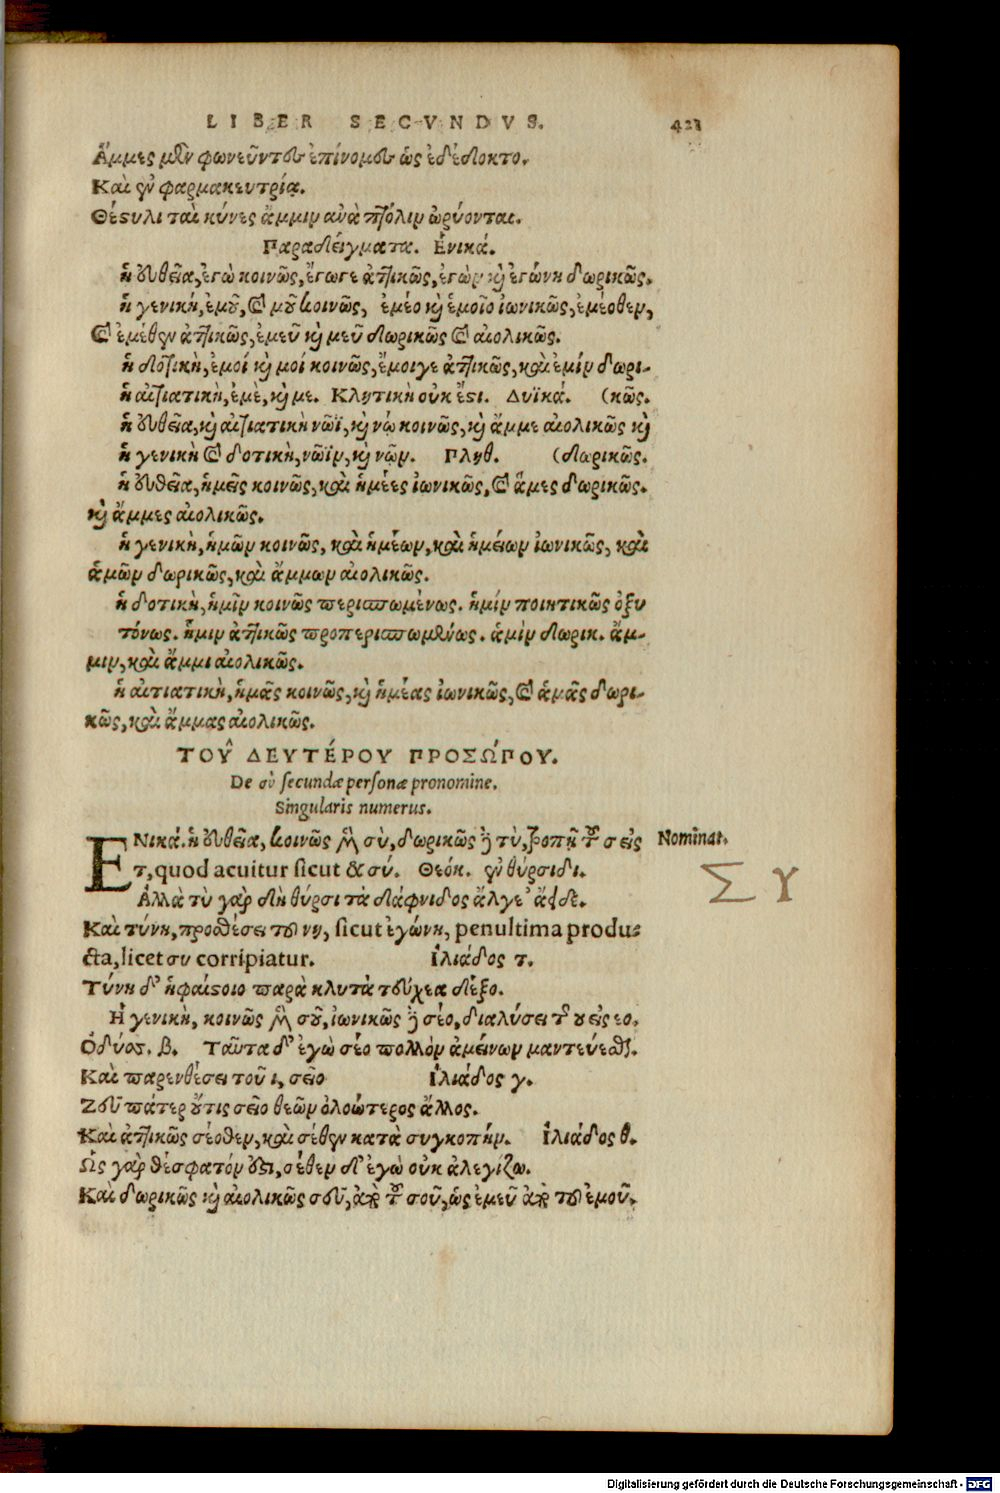 LIBER SECVNDVS. 421
Ἄμμες μὲν φωνεῦντες ἐπίνομες ὡς ἐδέδοκτο.
Καὶ ἐν φαρμακευτρίᾳ.
Θέστυλι ταὶ κύνες ἄμμιν ἀνὰ πτόλιν ὠρύονται.
Παραδείγματα. Ἑνικά.
ἡ εὐθεῖα, ἐγὼ κοινῶς, ἔγωγε ἀττικῶς, ἐγὼν καὶ ἐγώνη δωρικῶς.
ἡ γενική, ἐμοῦ, καὶ μοῦ κοινῶς, ἐμέο καὶ ἐμοῖο ἰωνικῶς, ἐμέοθεν,
καὶ ἐμέθεν ἀττικῶς, ἐμεῦ καὶ μεῦ δωρικῶς καὶ αἰολικῶς.
ἡ δοτικὴ, ἐμοί καὶ μοί κοινῶς, ἔμοιγε ἀττικῶς, καὶ ἐμίν δωρι-
ἡ αἰτιατικὴ, ἐμὲ, καὶ με. Κλητικὴ οὐκ ἔστι. Δυϊκά. (κῶς.
ἡ εὐθεῖα, καὶ αἰτιατικὴ νῶϊ, καὶ νώ κοινῶς, καὶ ἄμμε αἰολικῶς καὶ
ἡ γενικὴ καὶ δοτικὴ, νῶϊν, καὶ νῶν. Πληθ. (δωρικῶς.
ἡ εὐθεῖα, ἡμεῖς κοινῶς, καὶ ἡμέες ἰωνικῶς, καὶ ἅμες δωρικῶς.
καὶ ἄμμες αἰολικῶς.
ἡ γενικὴ, ἡμῶν κοινῶς, καὶ ἡμέων, καὶ ἡμείων ἰωνικῶς, καὶ
ἁμῶν δωρικῶς, καὶ ἄμμων αἰολικῶς.
ἡ δοτικὴ, ἡμῖν κοινῶς περισπωμένως. ἡμίν ποιητικῶς ὀξυ
τόνως. ἧμιν ἀττικῶς προπερισπωμένως. ἁμὶν δωρικ. ἄμ-
μιν, καὶ ἄμμι αἰολικῶς.
ἡ αἰτιατικὴ, ἡμᾶς κοινῶς, καὶ ἡμέας ἰωνικῶς, καὶ ἁμᾶς δωρι-
κῶς, καὶ ἄμμας αἰολικῶς.
ΤΟΥ͂ ΔΕΥΤΈΡΟΥ ΠΡΟΣΏΠΟΥ.
De σὺ secundæ personæ pronomine.
Singularis numerus.
ΕΝικά. ἡ εὐθεῖα, κοινῶς μὲν σὺ, δωρικῶς δὲ τὺ, τροπῇ τοῦ σ εἰς Nominat.
τ, quod acuitur sicut & σύ. Θεόκ. ἐν θύρσιδι.
Σ Υ
Ἀλλὰ τὺ γὰρ δὴ θύρσι τὰ δάφνιδος ἄλγε’ ἄειδε.
Καὶ τύνη, προσθέσει τοῦ νη, sicut ἐγώνη, penultima produ-
cta, licet συ corripiatur. Ἰλιάδος τ.
Τύνη δ’ ἡφαίστοιο παρὰ κλυτὰ τεύχεα δέξο.
Ἡ γενικὴ, κοινῶς μὲν σοῦ, ἰωνικῶς δὲ σέο, διαλύσει τῆς ου εἰς εο.
Ὀδύσς. β. Ταῦτα δ’ ἐγὼ σέο πολλὸν ἀμείνων μαντεύεσθαι.
Καὶ παρενθέσει τοῦ ι, σεῖο Ἰλιάδος γ.
Ζεῦ πάτερ οὔτις σεῖο θεῶν ὀλοώτερος ἄλλος.
Καὶ ἀττικῶς σέοθεν, καὶ σέθεν κατὰ συγκοπήν. Ἰλιάδος θ.
Ὣς γὰρ θέσφατόν ἐστι, σέθεν δ’ ἐγὼ οὐκ ἀλεγίζω.
Καὶ δωρικῶς καὶ αἰολικῶς σεῦ, ἀπὸ τοῦ σοῦ, ὡς ἐμεῦ ἀπὸ τοῦ ἐμοῦ.
Digitalisierung gefördert durch die Deutsche Forschungsgemeinschaft - DFG